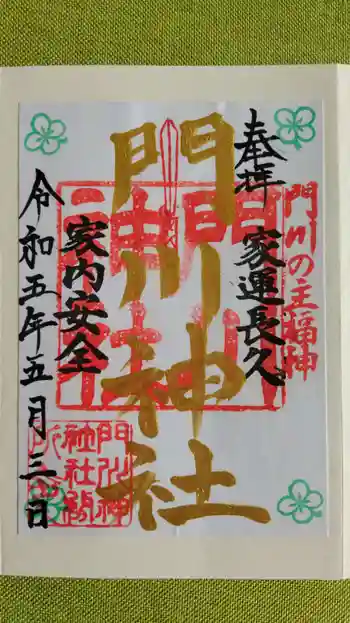 門川の主福神
奉拝 家運長久
門川神社
門川神社
家内安全
令和五年五月三日